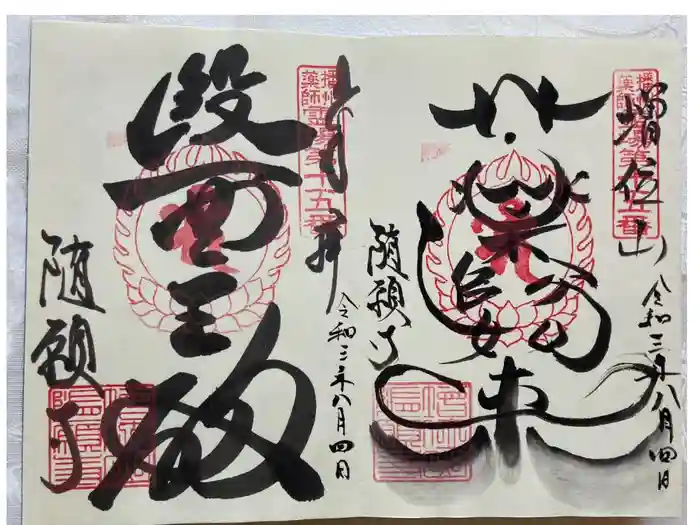 播州
薬師霊場第十五番
増位山
薬師如来
随願寺
令和三年八月四日
播州
薬師霊場第十五番
奉拝
醫王殿
随願寺
令和三年八月四日